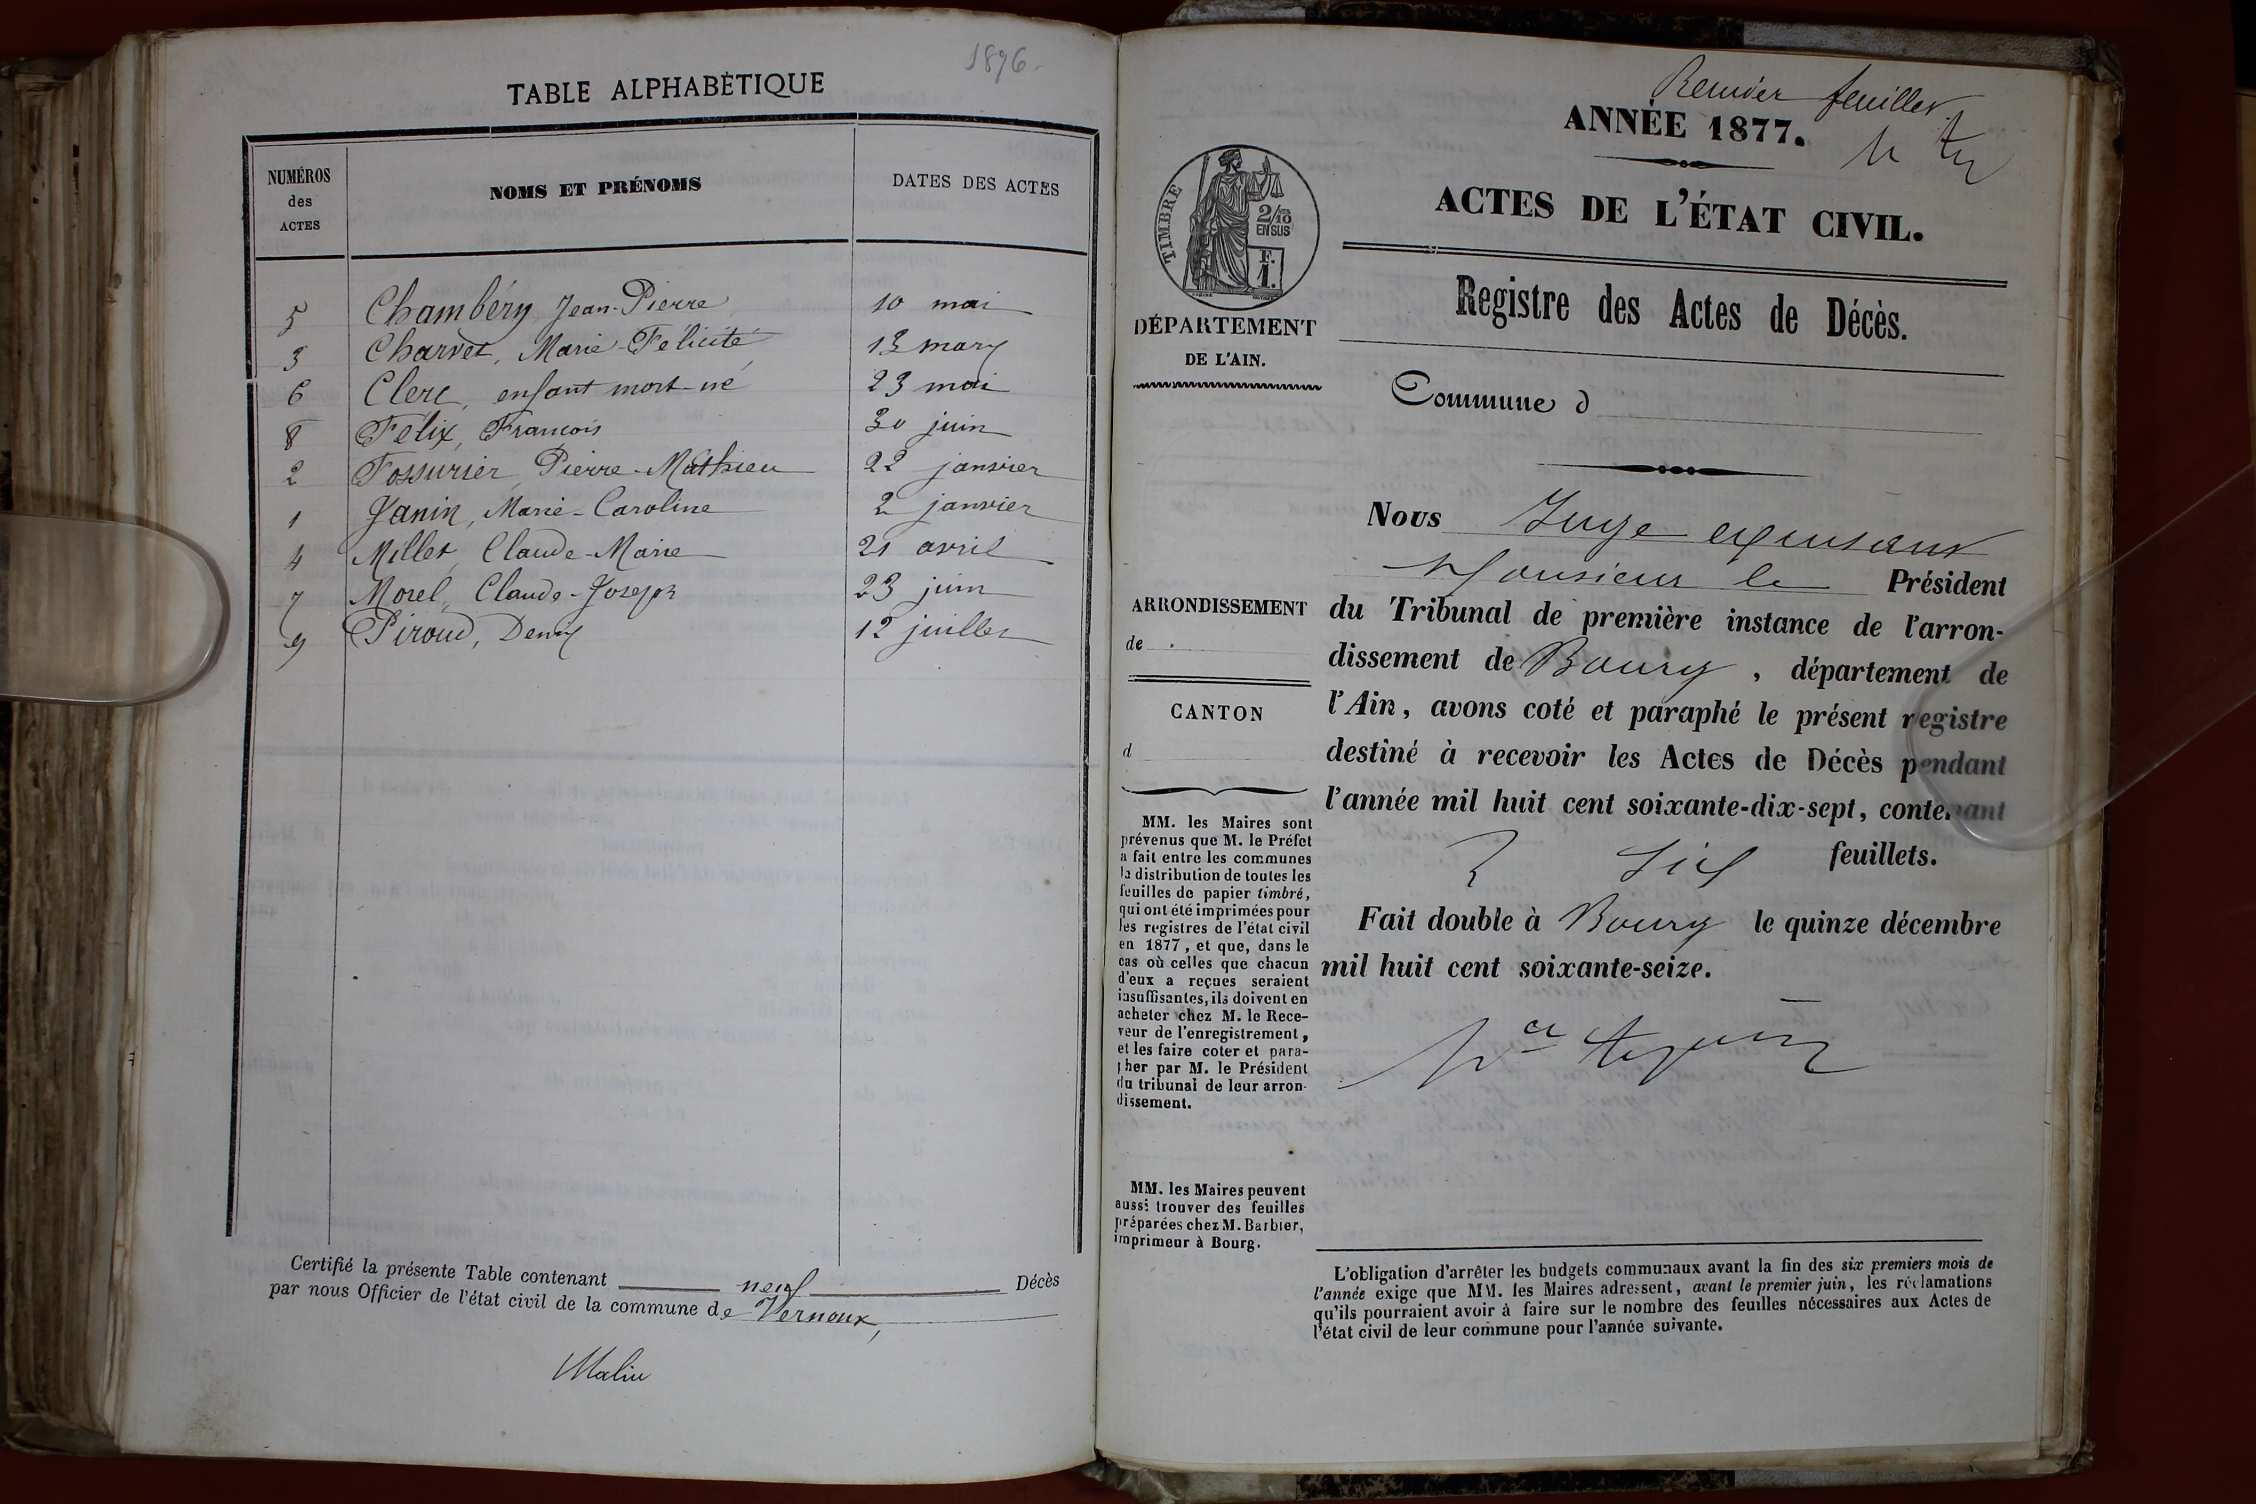 1876.
TABLE ALPHABÉTIQUE
NUMÉROS des ACTES
NOMS ET PRÉNOMS
DATES DES ACTES
5 Chambéry Jean-Pierre 10 mai
3 Charvet, Marie-Félicité 13 mars
6 Clerc, enfant mort-né 23 mai
8 Félix, François 30 juin
2 Fossurier, Pierre-Mathieu 22 janvier
1 Janin, Marie-Caroline 2 janvier
4 Millet, Claude-Marie 21 avril
7 Morel, Claude-Joseph 23 juin
9 Piroud, Denis 12 juillet
Certifié la présente Table contenant neuf Décès
par nous Officier de l'état civil de la commune de Vernoux,
feuillet
ANNÉE 1877.
ACTES DE L'ÉTAT CIVIL.
TIMBRE
2/10
EN SUS
F.
1.
DÉPARTEMENT
DE L'AIN.
Registre des Actes de Décès.
Commune d
ARRONDISSEMENT
de
CANTON
d
MM. les Maires sont
prévenus que M. le Préfet
a fait entre les communes
la distribution de toutes les
feuilles de papier timbré,
qui ont été imprimées pour
les registres de l'état civil
en 1877, et que, dans le
cas où celles que chacun
d'eux a reçues seraient
insuffisantes, ils doivent en
acheter chez M. le Rece-
veur de l'enregistrement,
et les faire coter et para-
pher par M. le Président
du tribunal de leur arron-
dissement.
MM. les Maires peuvent
aussi trouver des feuilles
préparées chez M. Barbier,
imprimeur à Bourg.
Nous Juge
Monsieur le Président
du Tribunal de première instance de l'arron-
dissement de Bourg, département de
l'Ain, avons coté et paraphé le présent registre
destiné à recevoir les Actes de Décès pendant
l'année mil huit cent soixante-dix-sept, contenant
feuillets.
Fait double à Bourg le quinze décembre
mil huit cent soixante-seize.
L'obligation d'arrêter les budgets communaux avant la fin des six premiers mois de
l'année exige que MM. les Maires adressent, avant le premier juin, les réclamations
qu'ils pourraient avoir à faire sur le nombre des feuilles nécessaires aux Actes de
l'état civil de leur commune pour l'année suivante.